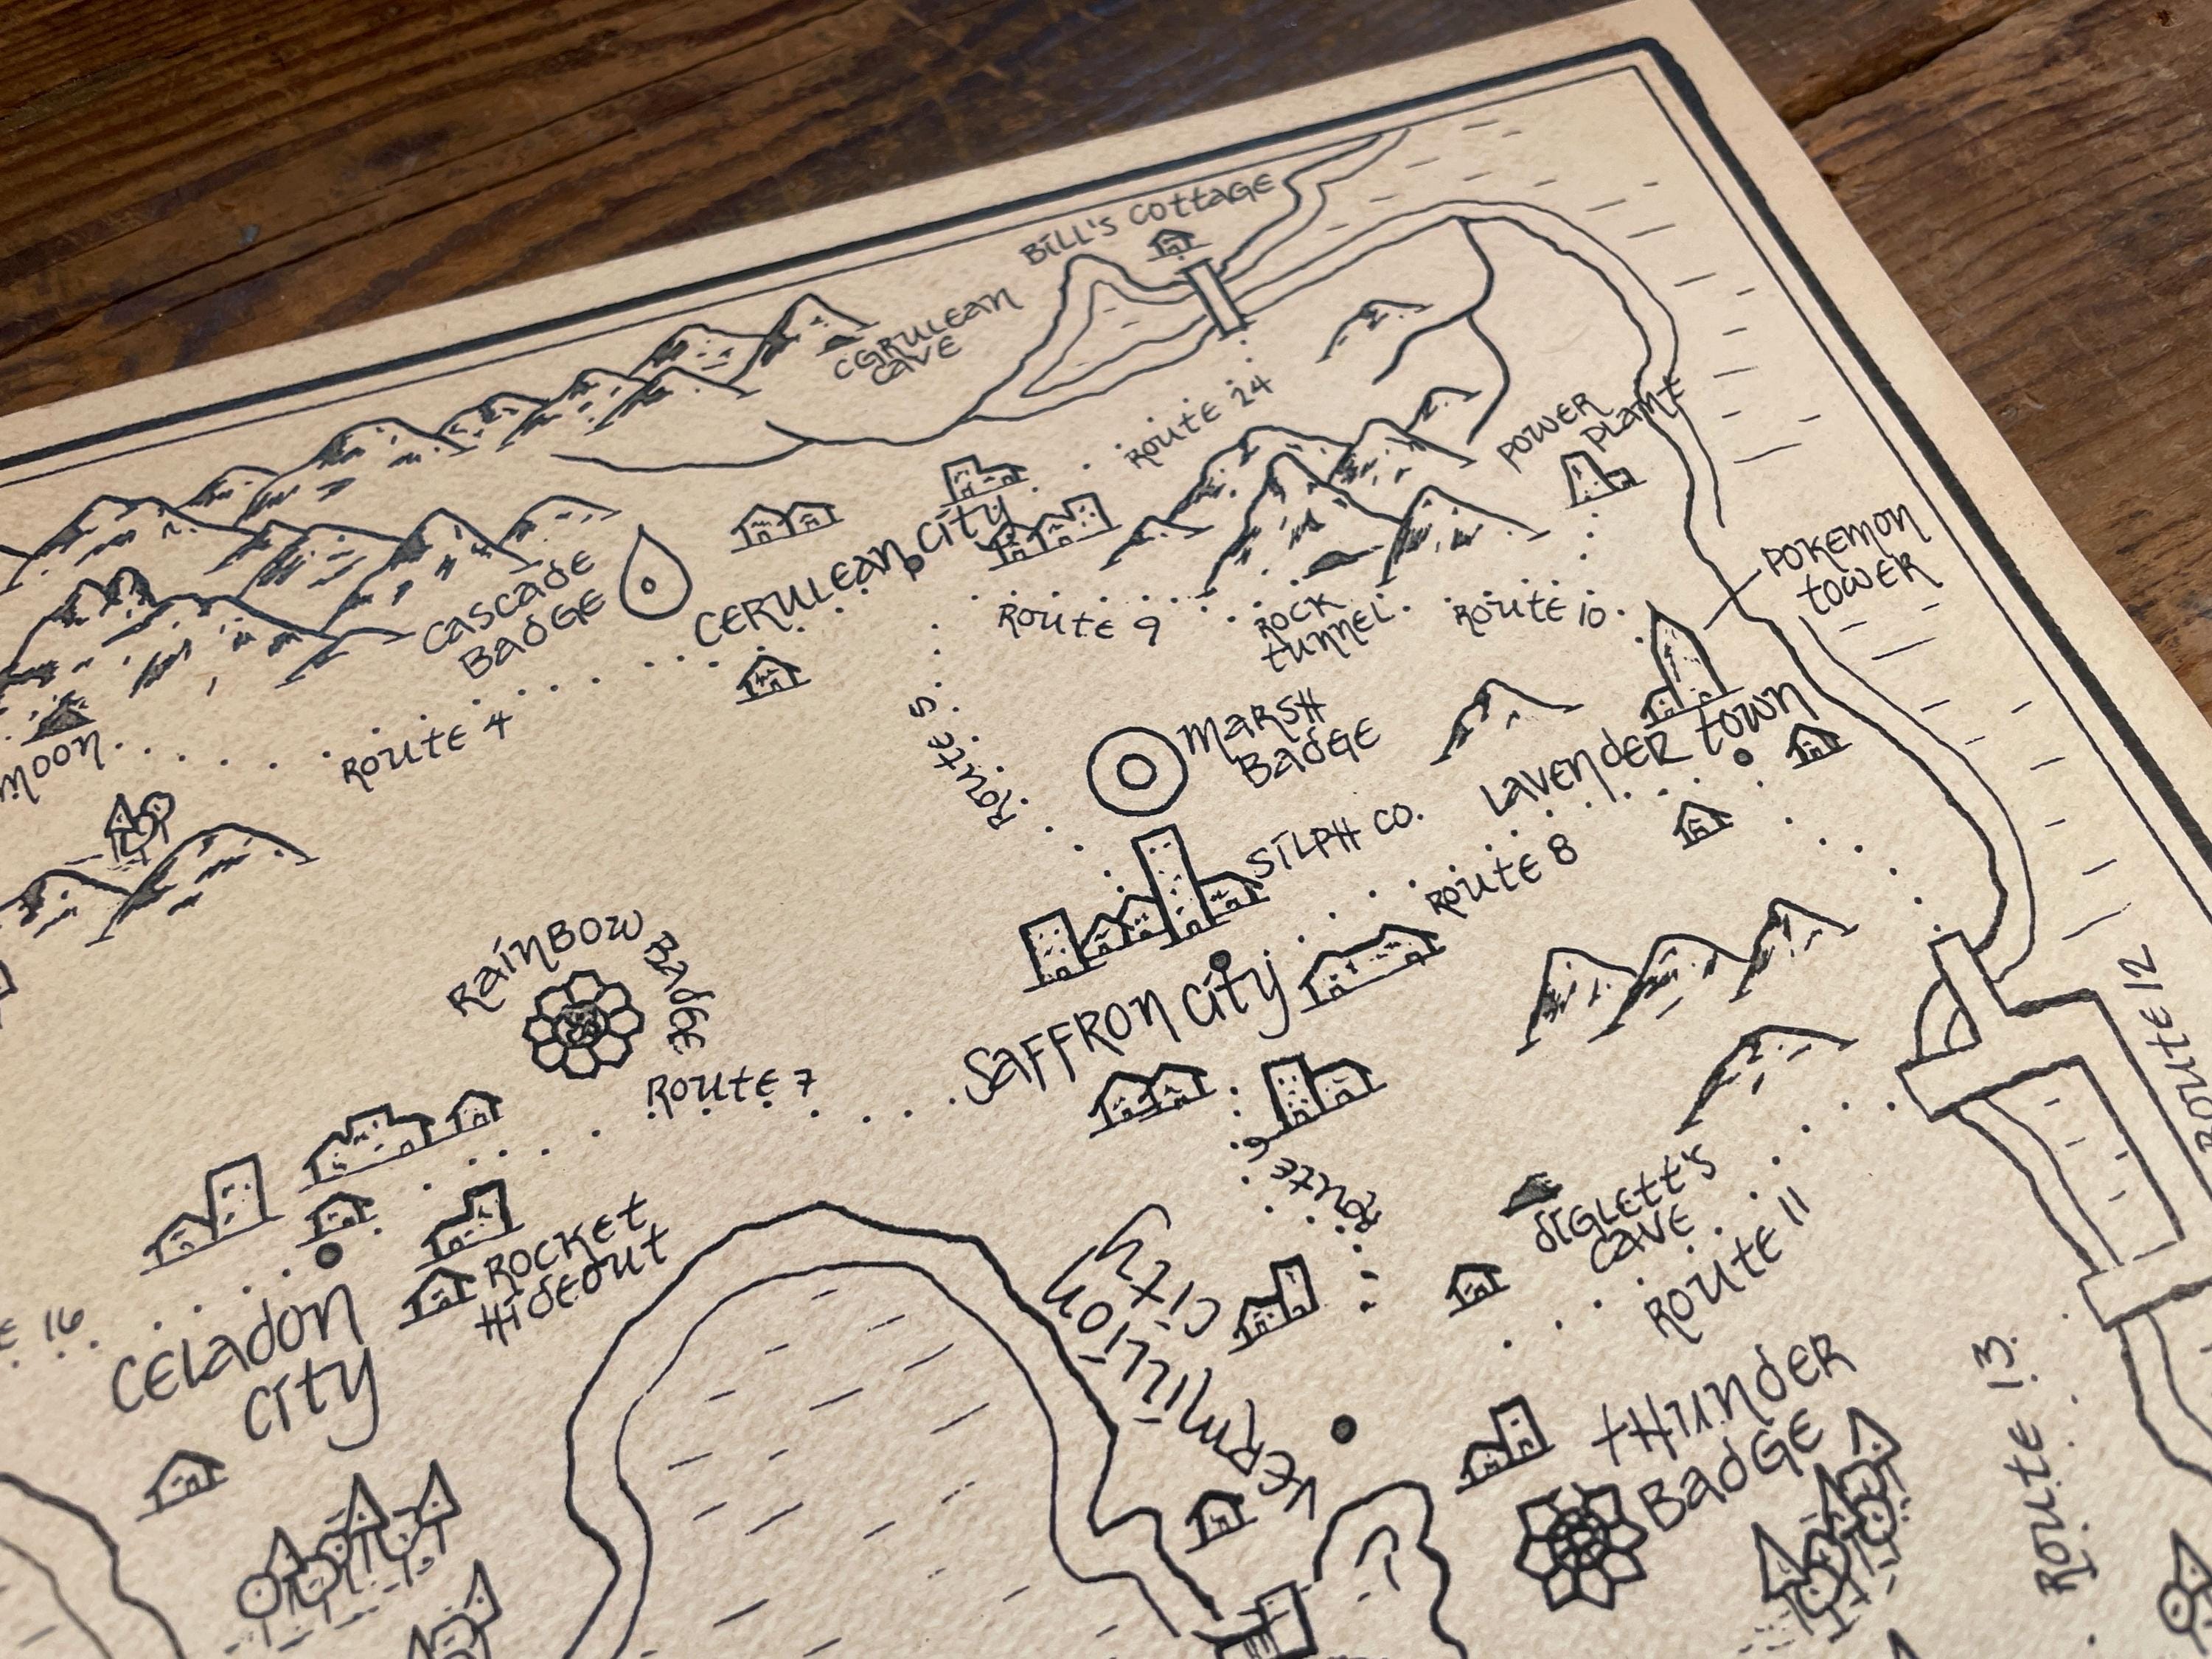 BILL'S COTTAGE
CERULEAN
CAVE
ROUTE 24
POWER
PLANT
POKEMON
TOWER
CASCADE
BADGE
CERULEAN CITY
ROUTE 9
ROCK
TUNNEL
ROUTE 10
MOON
ROUTE 4
ROUTE 5
MARSH
BADGE
LAVENDER TOWN
SILPH CO.
ROUTE 8
RAINBOW BADGE
SAFFRON CITY
ROUTE 7
ROUTE 12
ROUTE 6
ROCKET
HIDEOUT
DIGLETT'S
CAVE
ROUTE 11
16
CELADON
CITY
VERMILLION
CITY
THUNDER
BADGE
ROUTE 13